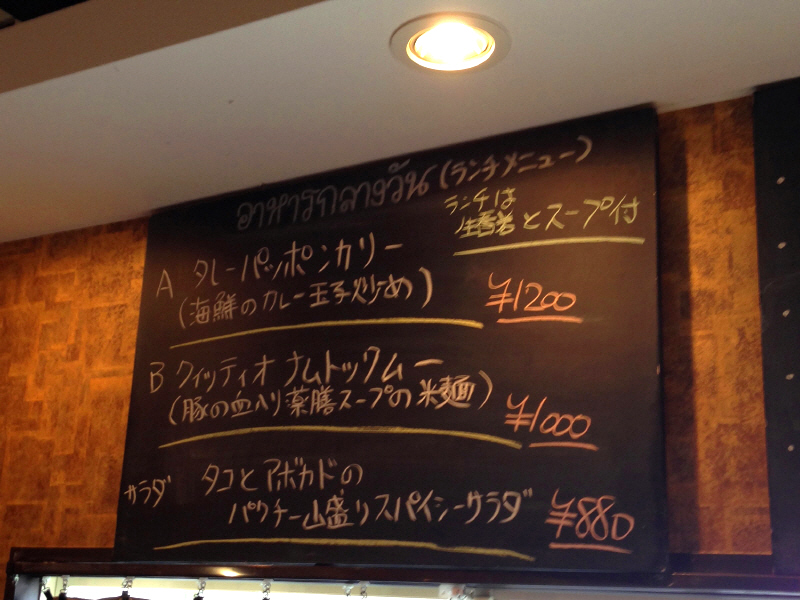 อาหารกลางวัน (ランチメニュー)
ランチは
生春巻とスープ付
A タレーパッポンカリー
(海鮮のカレー玉子炒め) ¥1200
B クィッティオ ナムトックムー
(豚の血入り薬膳スープの米麺) ¥1000
サラダ タコとアボカドの
パクチー山盛りスパイシーサラダ ¥880